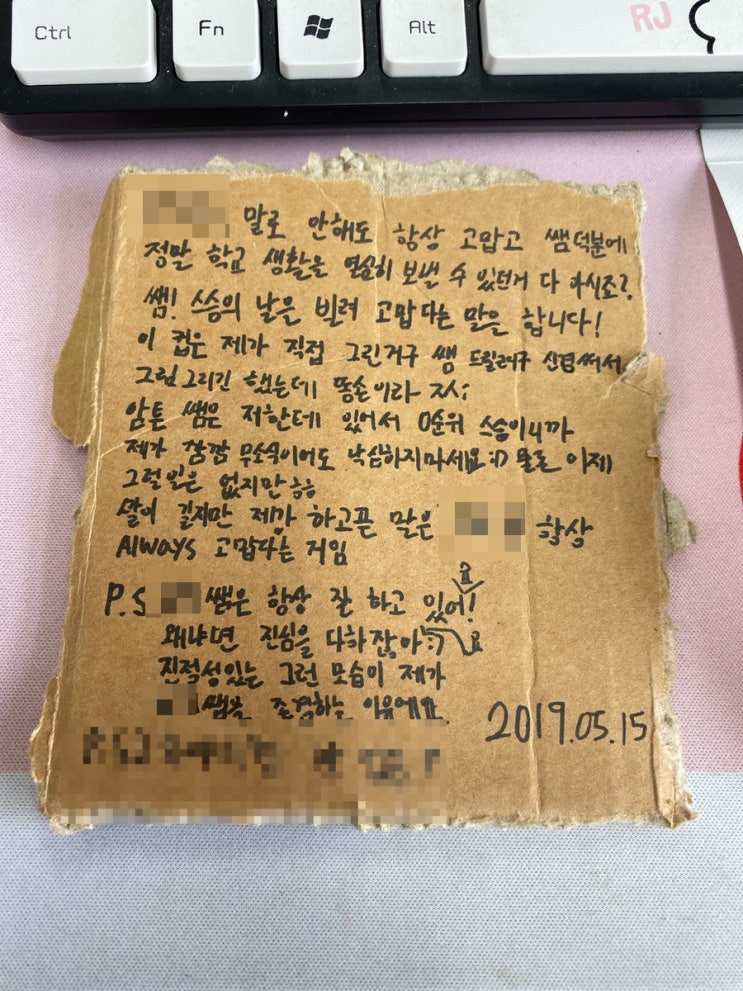 Ctrl
Fn
Alt
RJ
말로 안해도 항상 고맙고 쌤덕분에
정말 학교 생활을 열실히 보낼 수 있던거 다 아시죠?
쌤! 스승의 날은 빌려 고맙다는 말은 합니다!
이 컵은 제가 직접 그린거구 쌤 드릴려구 신경써서
그림그리긴 했는데 똥손이라 ㅈㅅ;
암튼 쌤은 저한테 있어서 0순위 스승이니까
제가 깜깜 무소식이어도 낙심하지마세요:) 물론 이제
그럴일은 없지만 ㅎㅎ
말이 길지만 제가 하고픈 말은 항상
Always 고맙다는 거임
P.S 쌤은 항상 잘 하고 있어요!
왜냐면 진심을 다하잖아요:)
진적성있는 그런 모습이 제가
쌤을 존경하는 이유에요.
2019.05.15